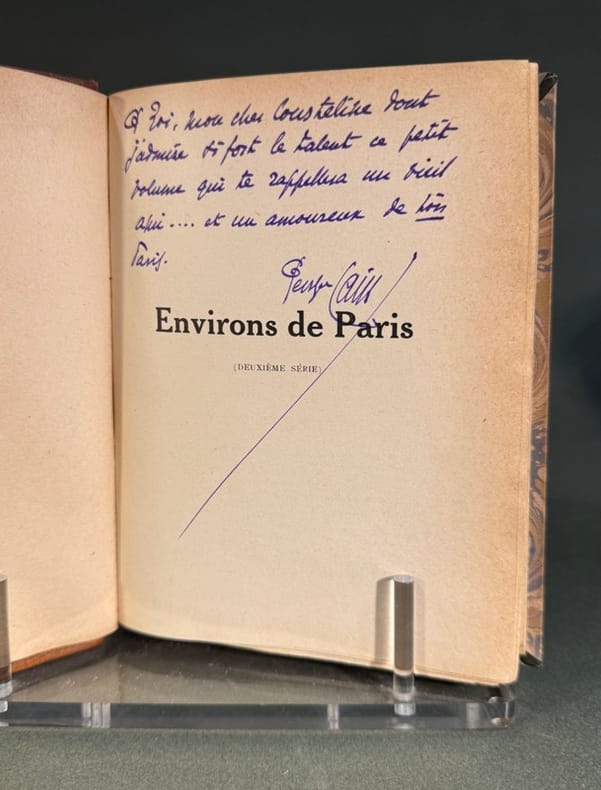 à Toi, mon cher Coustelire dont
j'admire si fort le talent ce petit
volume qui te rappellera un vieil
ami .... et un amoureux de ton
Paris.
Georges Cain
Environs de Paris
(DEUXIÈME SÉRIE)